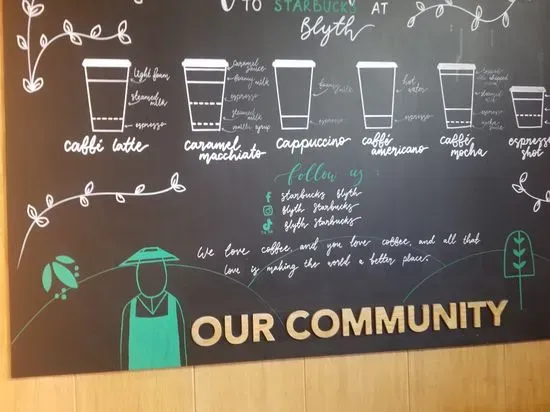 TO STARBUCKS AT
Blyth
light foam
steamed milk
espresso
caffé latte
caramel sauce
foamy milk
espresso
steamed milk
vanilla syrup
caramel macchiato
foamy milk
espresso
cappuccino
hot water
espresso
caffé americano
whipped cream
steamed milk
espresso
mocha sauce
caffé mocha
espresso shot
follow us
Starbucks Blyth
Blyth Starbucks
Blyth Starbucks
We love coffee, and you love coffee, and all that
love is making the world a better place.
OUR COMMUNITY